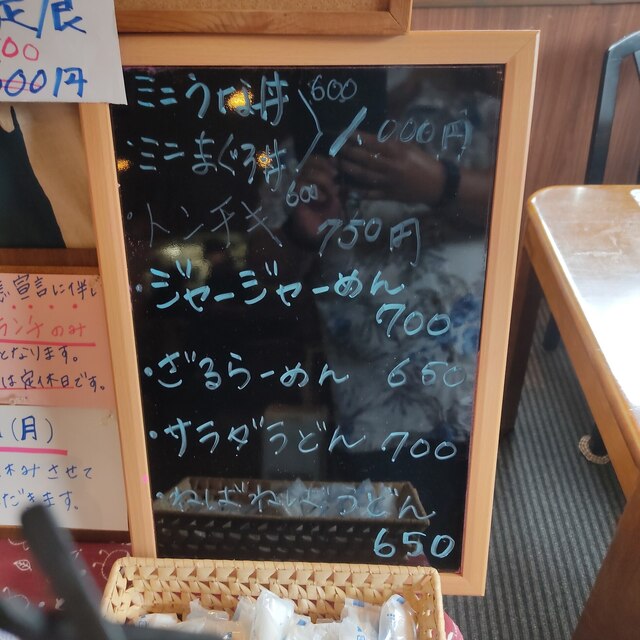 定食
00
000円
・ミニうな丼 600
1.000円
・ミニまぐろ丼
600
・トンチキ 750円
・ジャージャーめん
700
・ざるらーめん 650
・サラダうどん 700
・ねばねばうどん
650
急宣言に伴い
ランチのみ
となります。
は定休日です。
(月)
休みさせて
ただきます。